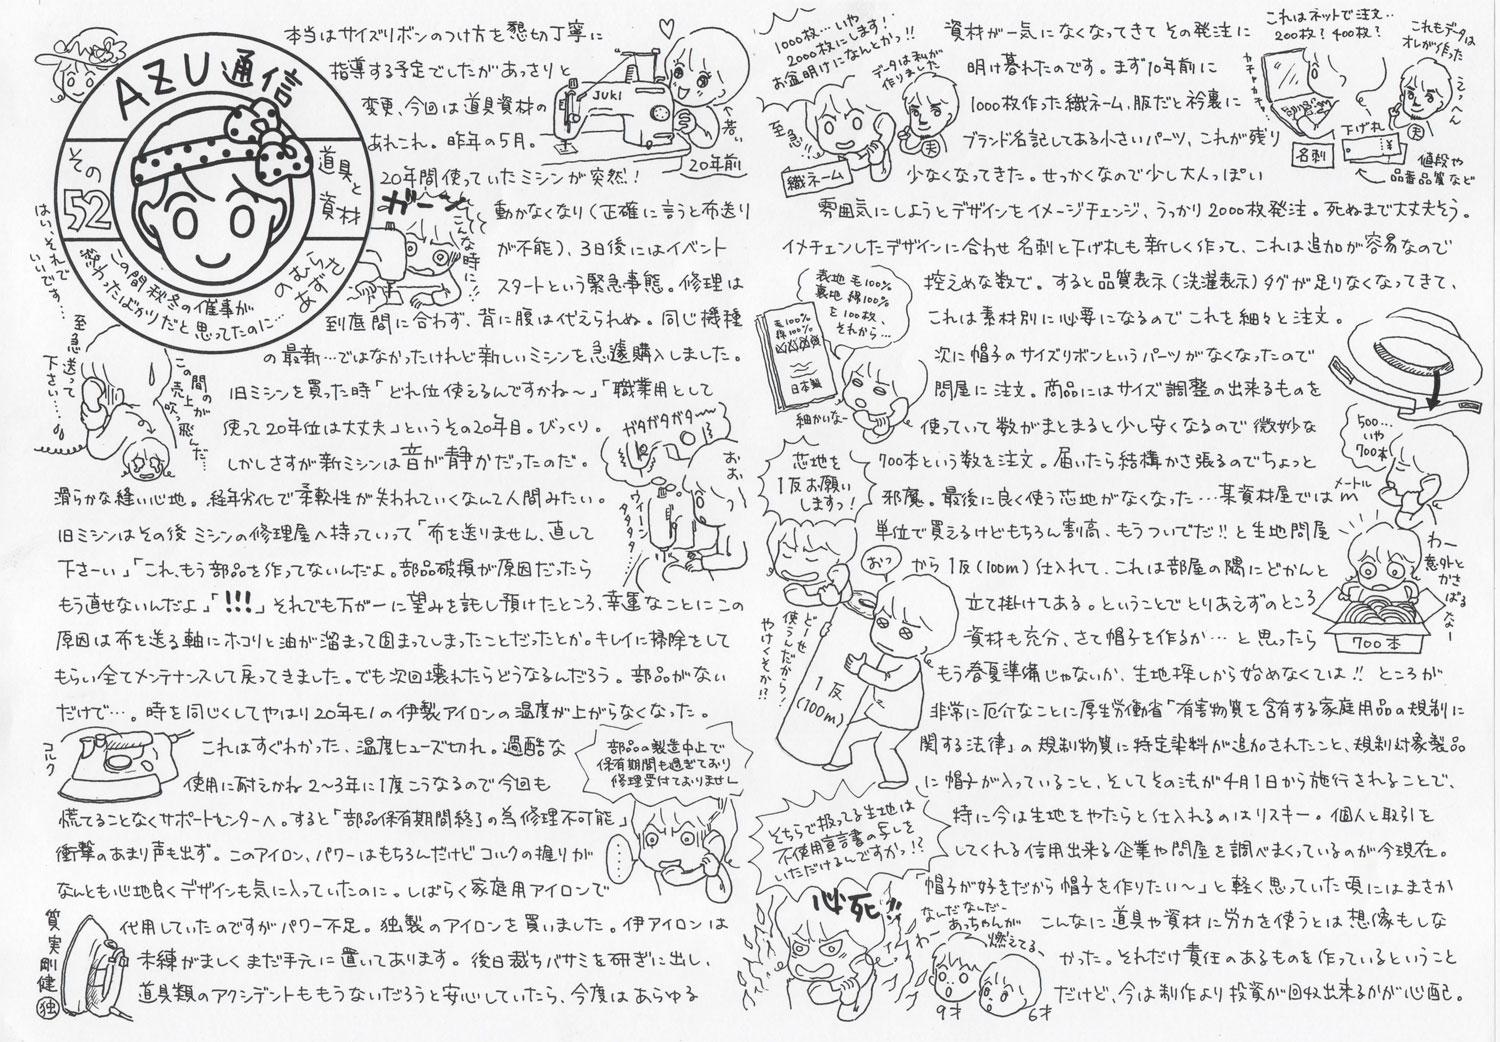 AZU通信
その
52
道具と
資材
のむら
あずさ
この間秋冬の催事が
終わったばかりだと思ってたのに…
はい、それで
いいです…
至急送って
下さい……
この間の
売上が
吹っ飛んだ…
本当はサイズリボンのつけ方を懇切丁寧に
指導する予定でしたがあっさりと
変更、今回は道具資材の
あれこれ。昨年の5月。
20年間使っていたミシンが突然!
動かなくなり(正確に言うと布送り
が不能)、3日後にはイベント
スタートという緊急事態。修理は
到底間に合わず、背に腹は代えられぬ。同じ機種
の最新…ではなかったけれど新しいミシンを急遽購入しました。
旧ミシンを買った時「どれ位使えるんですかね〜」「職業用として
使って20年位は大丈夫」というその20年目。びっくり。
しかしさすが新ミシンは音が静かだったのだ。
滑らかな縫い心地。経年劣化で柔軟性が失われていくなんて人間みたい。
旧ミシンはその後ミシンの修理屋へ持っていって「布を送りません、直して
下さーい」「これ、もう部品を作ってないんだよ。部品破損が原因だったら
もう直せないんだよ」「!!!」それでも万が一に望みを託し預けたところ、幸運なことにこの
原因は布を送る軸にホコリと油が溜まって固まってしまったことだったとか。キレイに掃除をして
もらい全てメンテナンスして戻ってきました。でも次回壊れたらどうなるんだろう。部品がない
だけで…。時を同じくしてやはり20年モノの伊製アイロンの温度が上がらなくなった。
これはすぐわかった、温度ヒューズ切れ。過酷な
使用に耐えかね2〜3年に1度こうなるので今回も
慌てることなくサポートセンターへ。すると「部品保有期間終了の為修理不可能」
衝撃のあまり声も出ず。このアイロン、パワーはもちろんだけどコルクの握りが
なんとも心地良くデザインも気に入っていたのに。しばらく家庭用アイロンで
代用していたのですがパワー不足。独製のアイロンを買いました。伊アイロンは
未練がましくまだ手元に置いてあります。後日裁ちバサミを研ぎに出し、
道具類のアクシデントももうないだろうと安心していたら、今度はあらゆる
JUKI
←若い
20年前
ガーン
こんな時に!
ガタガタガター
おぉ
ウィーン
タタタタ…
コルク
部品の製造中止で
保有期間も過ぎており
修理受付ておりません
……
質実剛健
独
資材が一気になくなってきてその発注に
明け暮れたのです。まず10年前に
1000枚作った織ネーム、服だと衿裏に
ブランド名記してある小さいパーツ、これが残り
少なくなってきた。せっかくなので少し大人っぽい
雰囲気にしようとデザインをイメージチェンジ、うっかり2000枚発注。死ぬまで大丈夫そう。
イメチェンしたデザインに合わせ名刺と下げ札も新しく作って、これは追加が容易なので
控えめな数で。すると品質表示(洗濯表示)タグが足りなくなってきて、
これは素材別に必要になるのでこれを細々と注文。
次に帽子のサイズリボンというパーツがなくなったので
問屋に注文。商品にはサイズ調整の出来るものを
使っていて数がまとまると少し安くなるので微妙な
700本という数を注文。届いたら結構かさ張るのでちょっと
邪魔。最後に良く使う芯地がなくなった…某資材屋ではm
メートル
単位で買えるけどもちろん割高、もうついでだ!!と生地問屋
から1反(100m)仕入れて、これは部屋の隅にどかんと
立て掛けてある。ということでとりあえずのところ
資材も充分、さて帽子を作るか…と思ったら
もう春夏準備じゃないか、生地探しから始めなくては!!ところが
非常に厄介なことに厚生労働省「有害物質を含有する家庭用品の規制に
関する法律」の規制物質に特定染料が追加されたこと、規制対象製品
に帽子が入っていること、そしてその法が4月1日から施行されることで、
特に今は生地をやたらと仕入れるのはリスキー。個人と取引を
してくれる信用出来る企業や問屋を調べまくっているのが今現在。
「帽子が好きだから帽子を作りたい〜」と軽く思っていた頃にはまさか
こんなに道具や資材に労力を使うとは想像もしな
かった。それだけ責任のあるものを作っているということ
だけど、今は制作より投資が回収出来るかが心配。
1000枚…いや
2000枚にします!
お盆明けになんとかっ!!
データは私が
作りました
至急!!
夫
織ネーム
これはネットで注文…
200枚?400枚?
カチャカチャ
これもデータは
オレが作った
えっへん
夫
名刺
下げ札
¥
値段や
品番品質など
表地 毛100%
裏地 綿100%
を100枚、
それから…
毛100%
綿100%
日本製
細かいなー
500…
いや
700本
わー
意外と
かさ
ばる
なー
700本
芯地を
1反お願い
しますっ!
おっ
どーせ
使うんだから!
やけくそか!?
1反
(100m)
そちらで扱ってる生地は
不使用宣言書の写しを
いただけるんですかっ!?
必死!!
なんだなんだー
あっちゃんが
燃えてる
わー
9才
6才